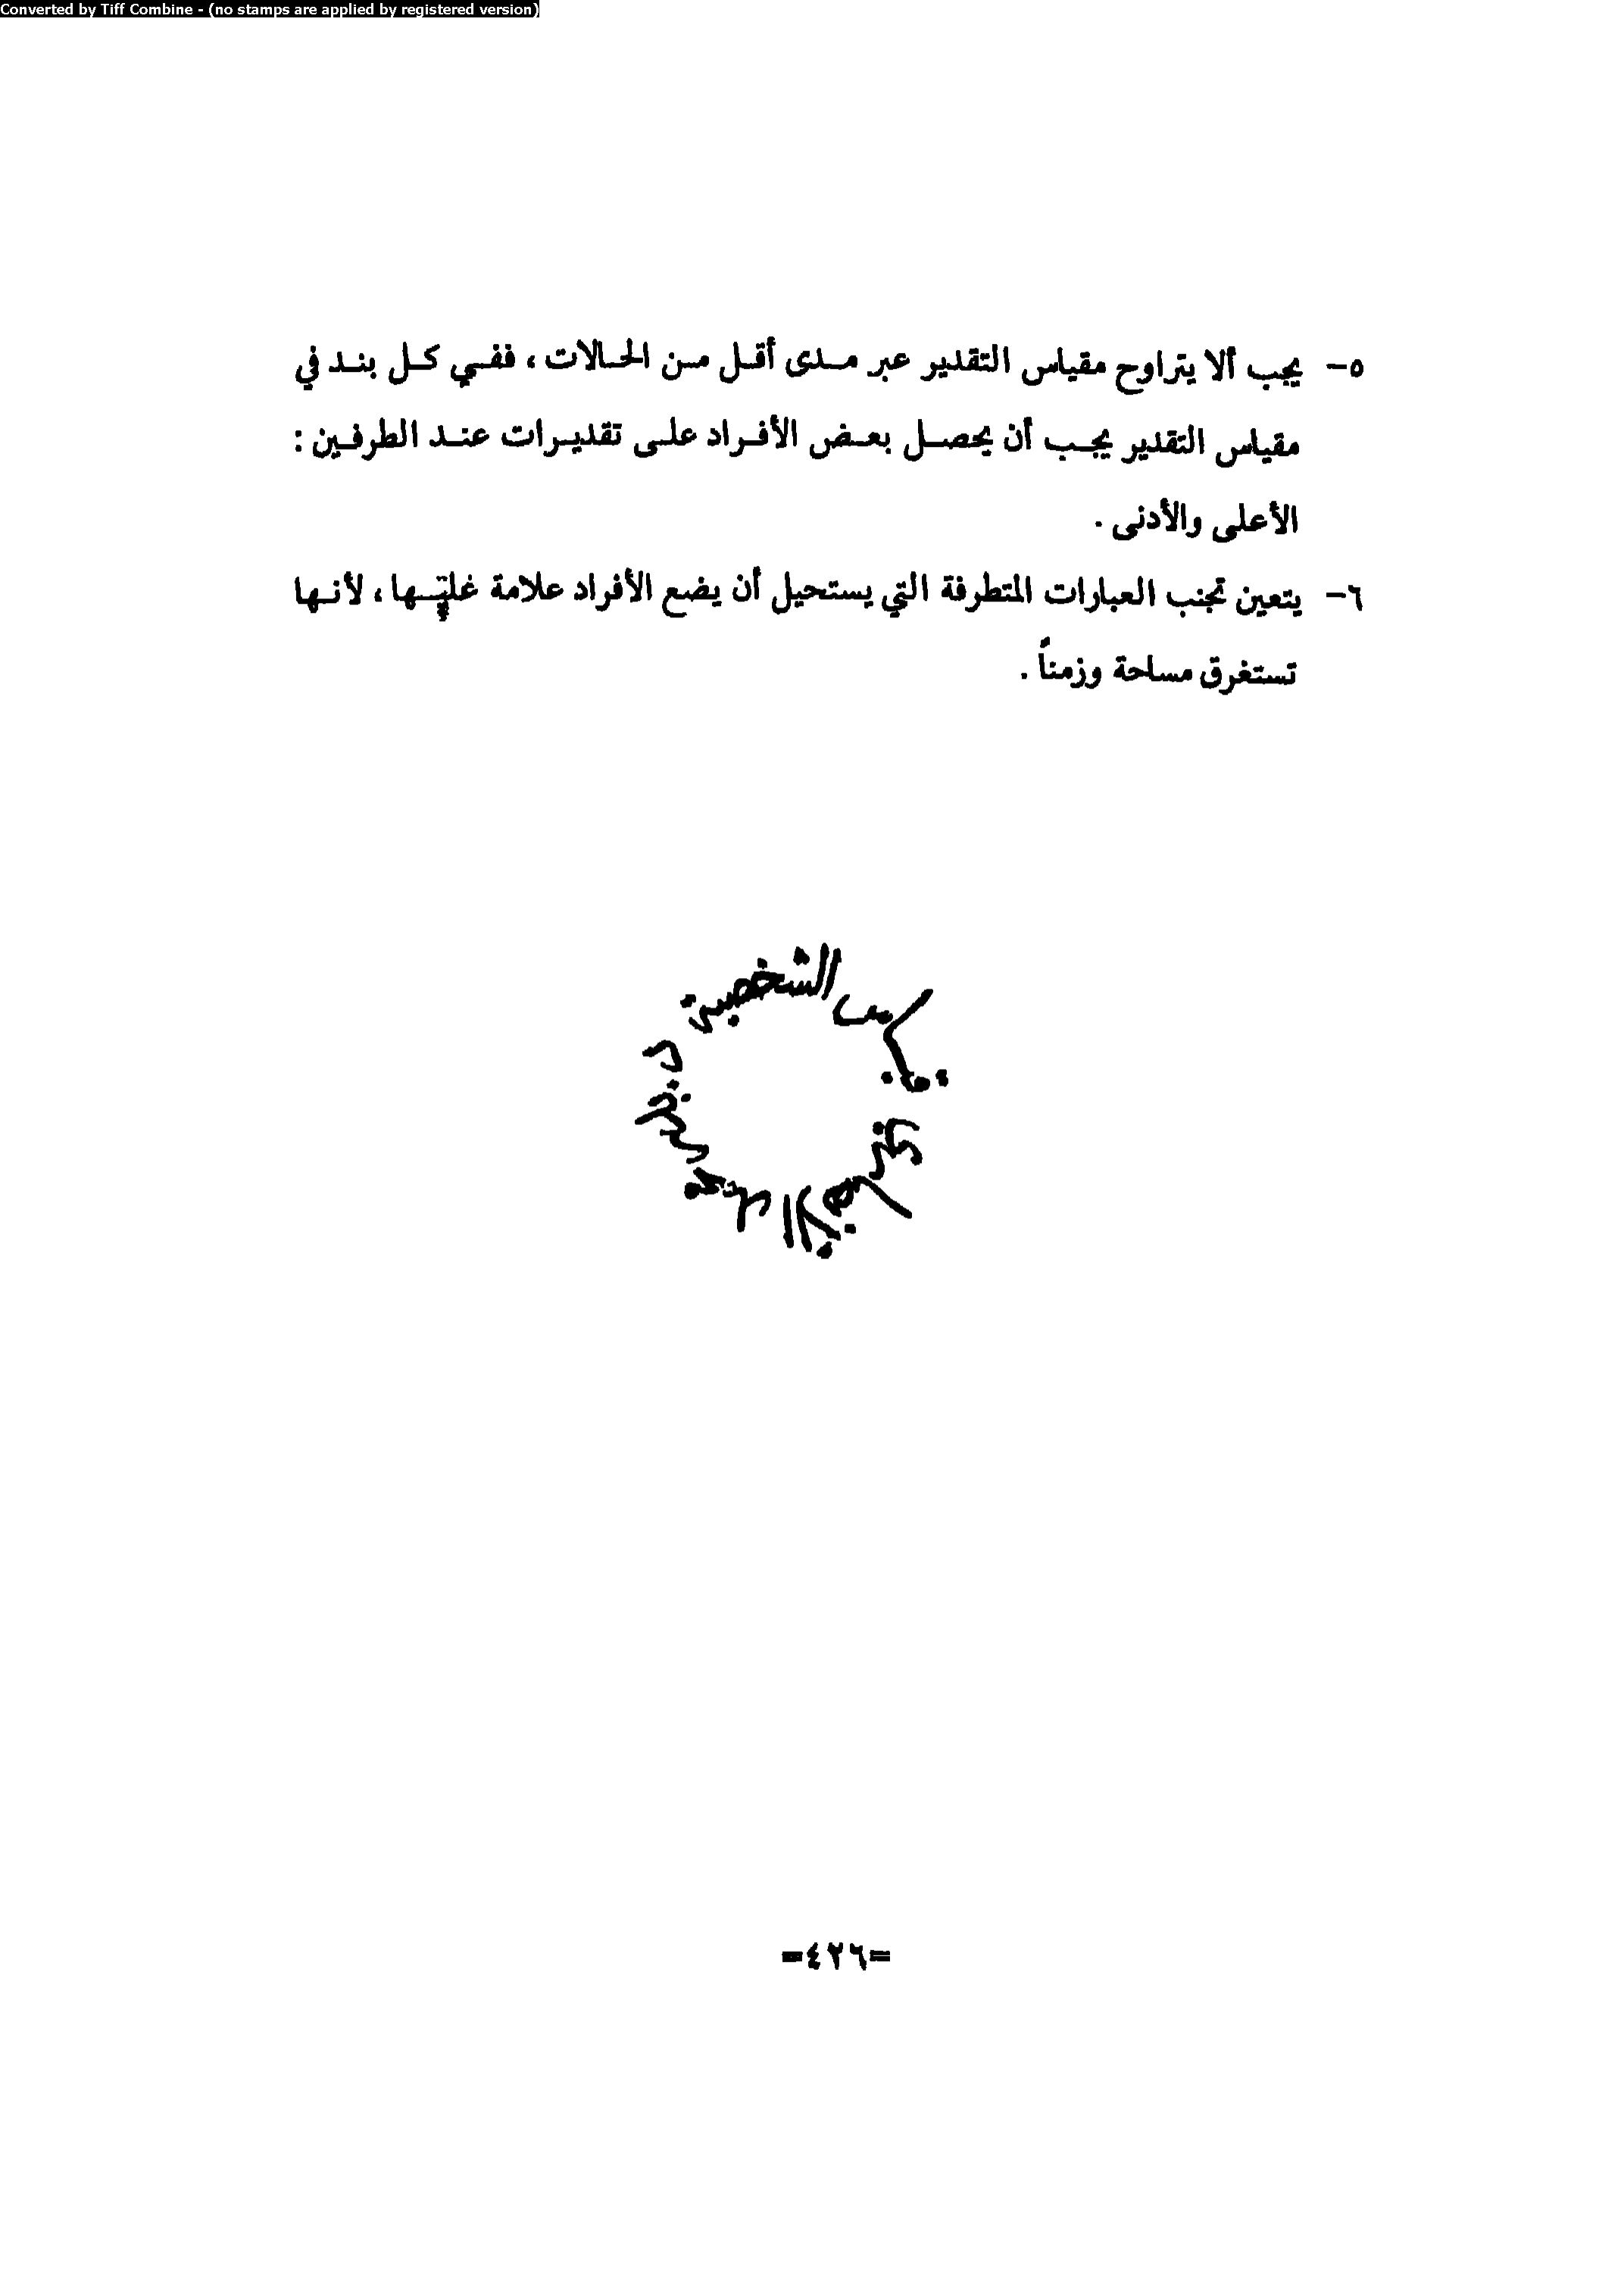 Converted by Tiff Combine - (no stamps are applied by registered version)
٥- يجب ألا يتراوح مقياس التقدير عبر مدى أقل من الحالات ، ففي كل بند في
مقياس التقدير يجب أن يحصل بعض الأفراد على تقديرات عند الطرفين :
الأعلى والأدنى .
٦- يتعين تجنب العبارات المتطرفة التي يستحيل أن يضع الأفراد علامة عليها ، لأنها
تستغرق مساحة وزمناً .
قياس الشخصية
=٤٢٦=